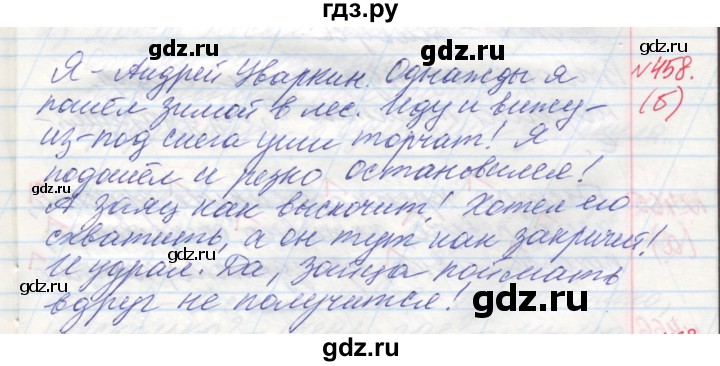 гдз.ру
Я - Андрей Уваркин. Однажды я №458.
пошёл зимой в лес. Иду и вижу - (б)
из-под снега уши торчат! Я
подошёл и резко остановился!
А заяц как выскочит! Хотел его
схватить, а он тут как закричит!
И удрал. Да, зайца поймать
вдруг не получится!
gdz.ru
gdz.ru
gdz.ru
gdz.ru
gdz.ru
gdz.ru
gdz.ru
gdz.ru
gdz.ru